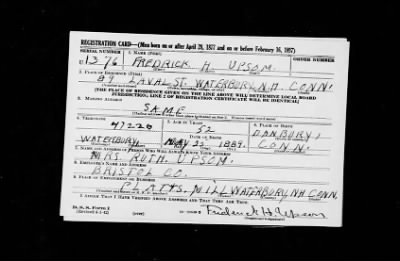 REGISTRATION CARD—(Men born on or after April 28, 1877 and on or before February 16, 1897)
SERIAL NUMBER 1. NAME (Print) ORDER NUMBER
U 1376 FREDRICK H. UPSOM.
2. PLACE OF RESIDENCE (Print)
89 LAVAL ST. WATERBURY, N.H. CONN.
[THE PLACE OF RESIDENCE GIVEN ON THE LINE ABOVE WILL DETERMINE LOCAL BOARD
JURISDICTION; LINE 2 OF REGISTRATION CERTIFICATE WILL BE IDENTICAL]
3. MAILING ADDRESS
SAME
4. TELEPHONE 5. AGE IN YEARS 6. PLACE OF BIRTH
47220 52 DANBURY,
WATERBURY MAY 22, 1889. CONN.
7. NAME AND ADDRESS OF PERSON WHO WILL ALWAYS KNOW YOUR ADDRESS
MRS RUTH UPSOM.
8. EMPLOYER'S NAME AND ADDRESS
BRISTOL CO.
9. PLACE OF EMPLOYMENT OR BUSINESS
PLATTS MILL WATERBURY, NH CONN.
I AFFIRM THAT I HAVE VERIFIED ABOVE ANSWERS AND THAT THEY ARE TRUE.
D. S. S. Form 1
Frederick H. Upson